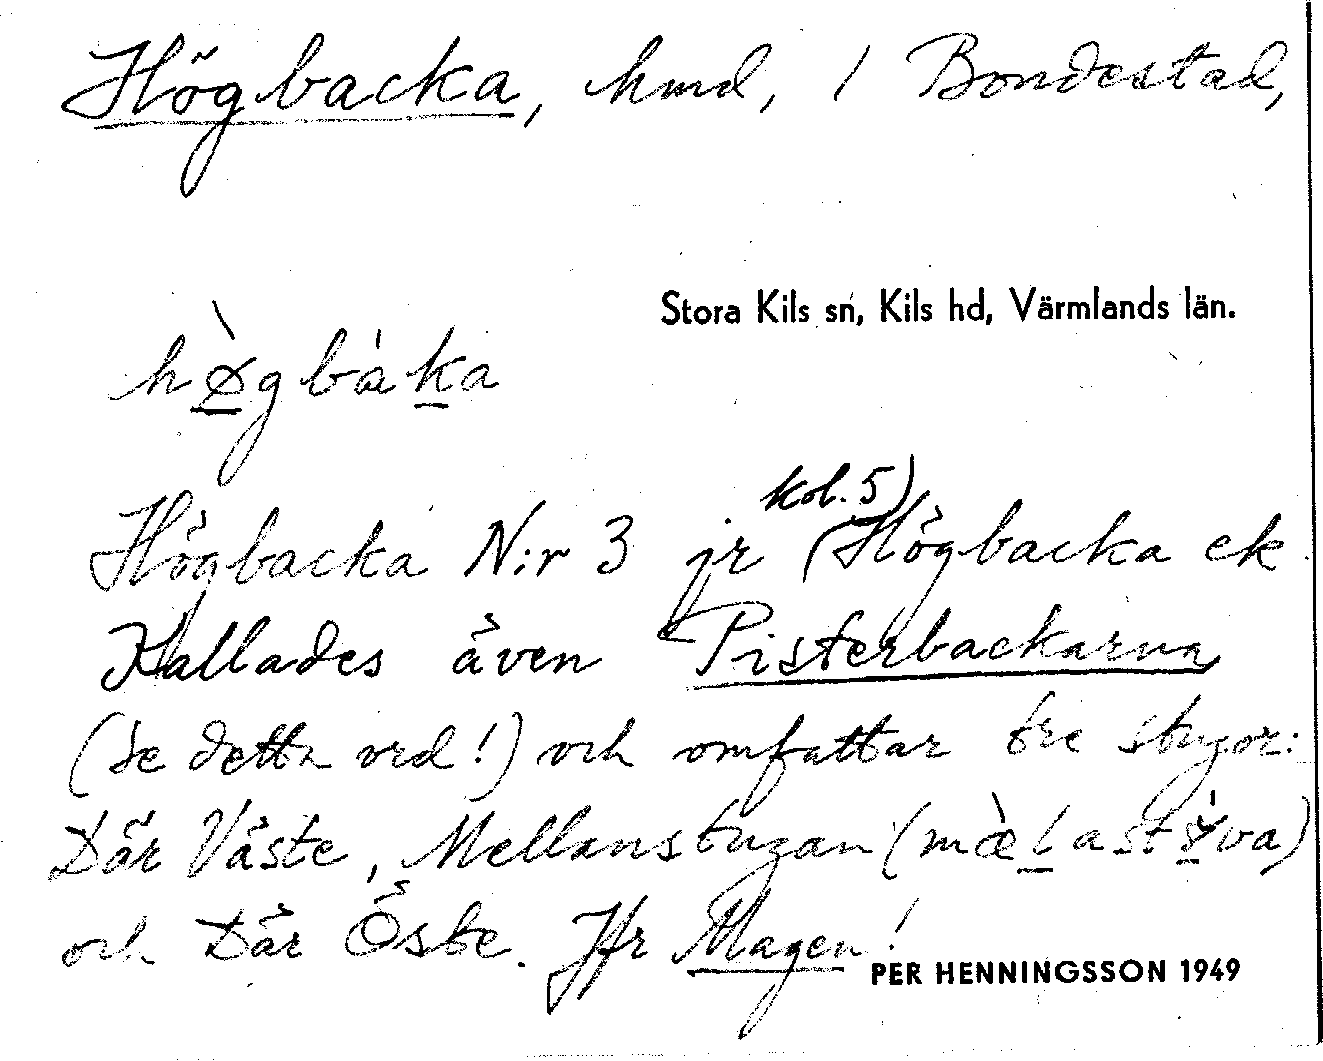 Högbacka, hmd, i Bondestad,
Stora Kils sn, Kils hd, Värmlands län.
hø̀gbàka
kol. 5)
Högbacka N:r 3 jr (Högbacka ek
Kallades även Pisterbackarna
(se detta ord!) och omfattar tre stugor:
Där Väste, Mellanstugan (mæ̀lastỳva)
och Där Öste. Jfr Magen!
PER HENNINGSSON 1949